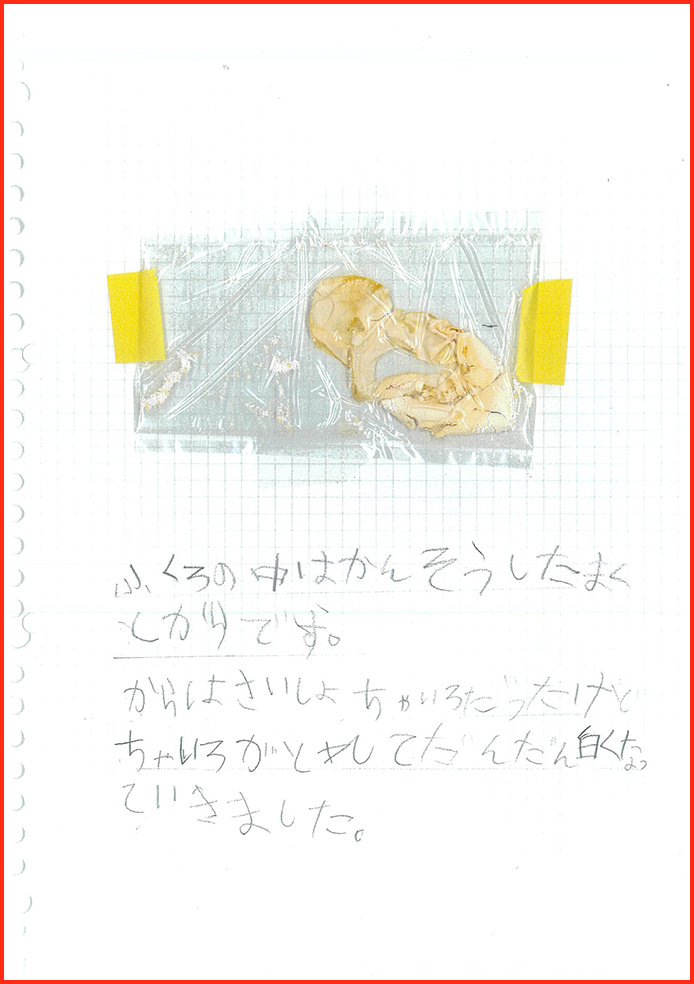 ふくろの中はかんそうしたまく
とからです。
からはさいしょちゃいろだったけど
ちゃいろがとれてだんだん白くなっ
ていきました。